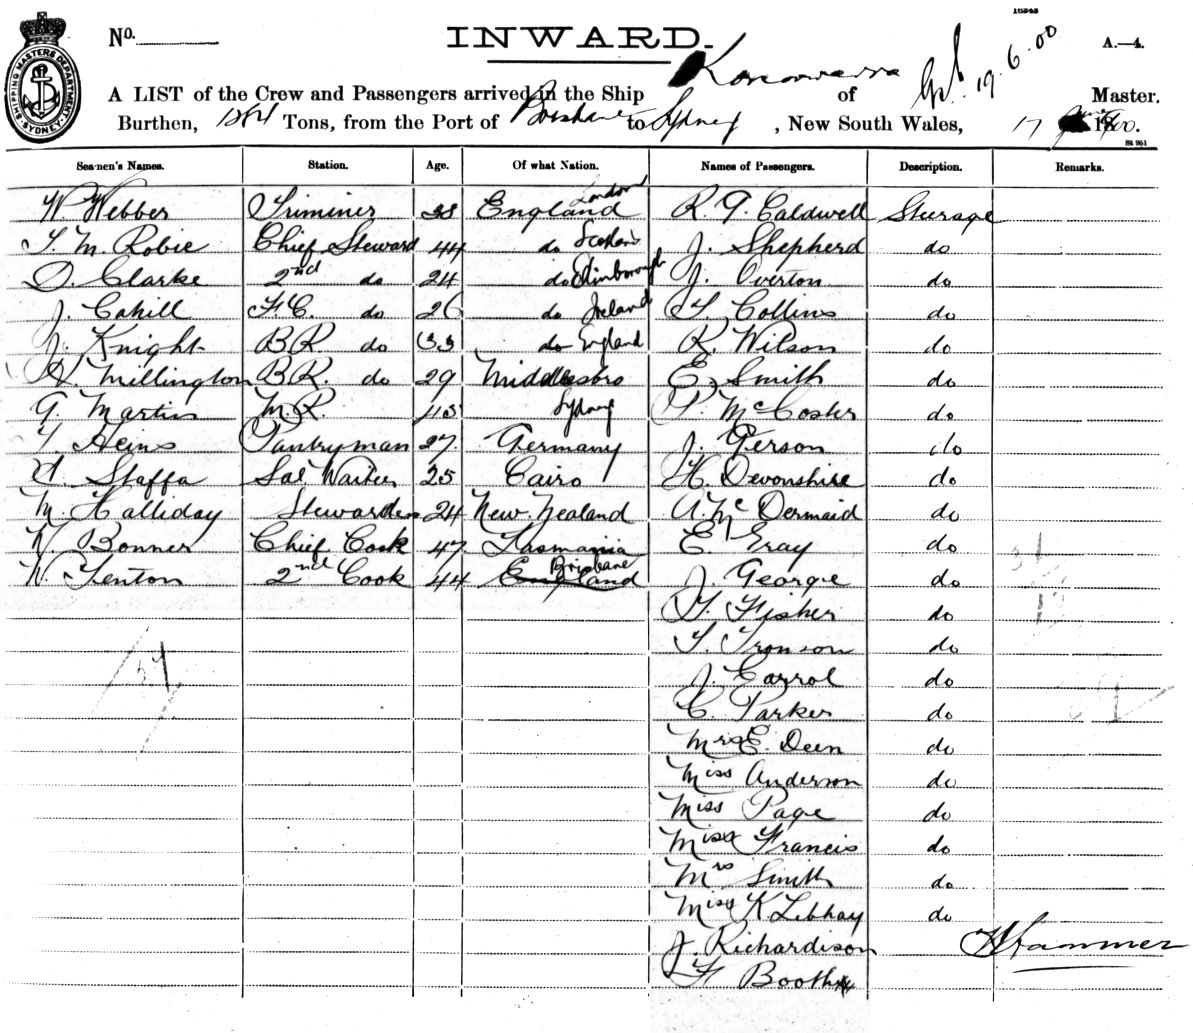 16343
No. INWARD. A.—4.
Konoowarra 19.6.00
A LIST of the Crew and Passengers arrived in the Ship of Master.
Burthen, Tons, from the Port of Brisbane to Sydney, New South Wales, 17 1900.
St 961
SHIPPING MASTERS DEPARTMENT SYDNEY
Seamen's Names. Station. Age. Of what Nation. Names of Passengers. Description. Remarks.
London
W Webber Trimmer 38 England R. G. Caldwell Steerage
T. M. Robie Chief Steward 44 do Scotland J. Shepherd do
D. Clarke 2nd do 24 do Edinborough J. Overton do
J. Cahill F.C. do 26 do Ireland T. Collins do
J. Knight BR do 33 do England R. Wilson do
H. Millington BR. do 29 Middlesbro E. Smith do
G. Martin M.R. 43 Sydney P. McCosker do
T. Heins Pantryman 27 Germany J. Gerson do
A. Staffa Sal Waiter 25 Cairo H. Devonshire do
M. Halliday Stewardess 24 New Zealand A. McDermaid do
W. Bonner Chief Cook 47 Tasmania E. Gray do
Brisbane
W. Fenton 2nd Cook 44 England J. George do
T. Fisher do
T. Tronson do
J. Carrol do
C. Parker do
Mrs E. Deen do
Miss Anderson do
Miss Page do
Miss Francis do
Mrs Smith do
Miss K Lebhay do
J. Richardison
F Booth